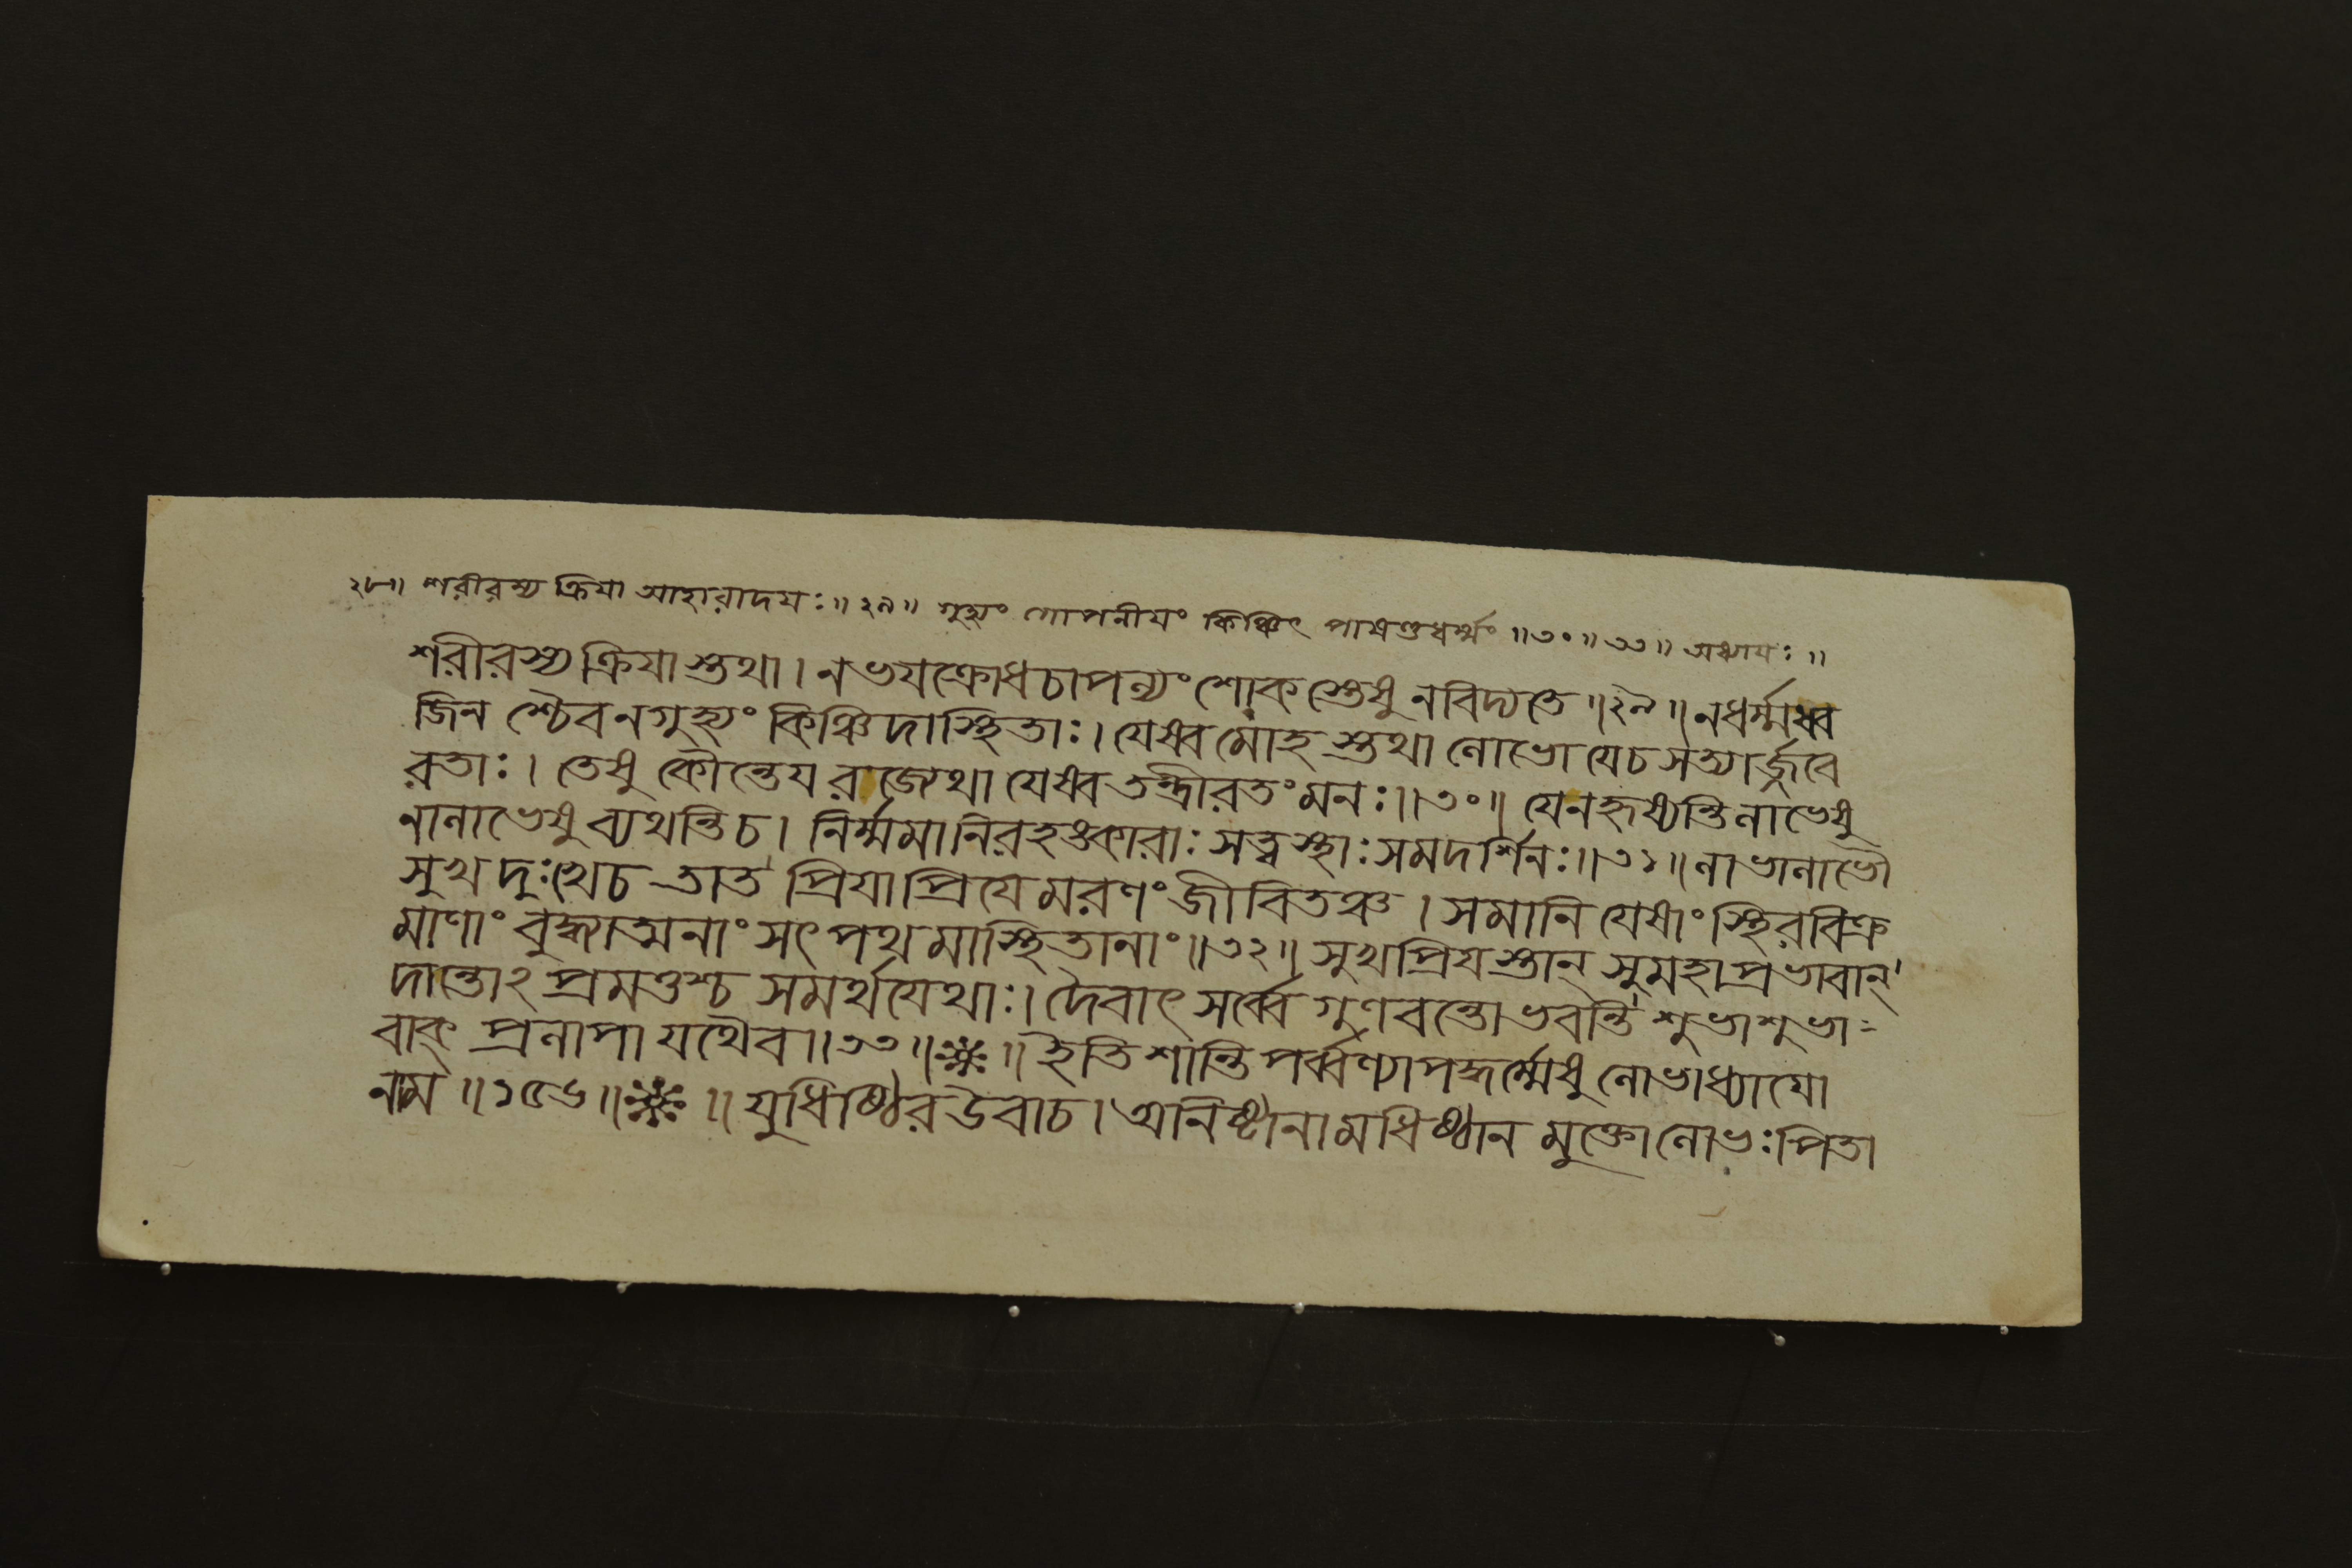 ২৮॥ শরীরস্য ক্রিযা আহারাদযঃ॥ ২৯॥ গুহ্যং গোপনীযং কিঞ্চিৎ পাষণ্ডধর্ম্মং॥৩০॥৩৩॥ অধ্যাযঃ॥
শরীরস্য ক্রিযাস্তথা। নভযক্রোধচাপল্যং শোকস্তেষু নবিদ্যতে॥২৯॥ নধর্ম্মধ্ব
জিনশ্চৈব নগুহ্যং কিঞ্চিদাস্থিতাঃ। যেষ্বমোহস্তথা লোভো যেচ সত্যার্জ্জবে
রতাঃ। তেষু কৌন্তেয রাজেথা যেষ্বতন্দ্রীরতং মনঃ॥৩০॥ যেনহৃষ্যন্তি লাভেষু
নালাভেষু ব্যথন্তিচ। নির্ম্মমা নিরহঙ্কারাঃ সত্ত্বস্থাঃ সমদর্শিনঃ॥৩১॥ লাভালাভৌ
সুখদুঃখেচ তাত প্রিযাপ্রিযে মরণং জীবিতঞ্চ। সমানি যেষাং স্থিরবিক্র
মাণাং বুদ্ধ্যাত্মনাং সৎপথমাস্থিতানাং॥৩২॥ সুখপ্রিযস্তান্ সুমহাপ্রভাবান্
দান্তোঽপ্রমত্তশ্চ সমর্থযেথাঃ। দৈবাৎ সর্ব্বে গুণবন্তো ভবন্তি শুভাশুভা-
বাক্ প্রলাপা যথৈব॥৩৩॥※॥ ইতি শান্তিপর্ব্বণ্যাপদ্ধর্ম্মেষু লোভাধ্যাযো
নাম॥১৫৬॥※॥ যুধিষ্ঠির উবাচ। অনিষ্টানামধিষ্ঠান মুক্তো লোভঃ পিতা